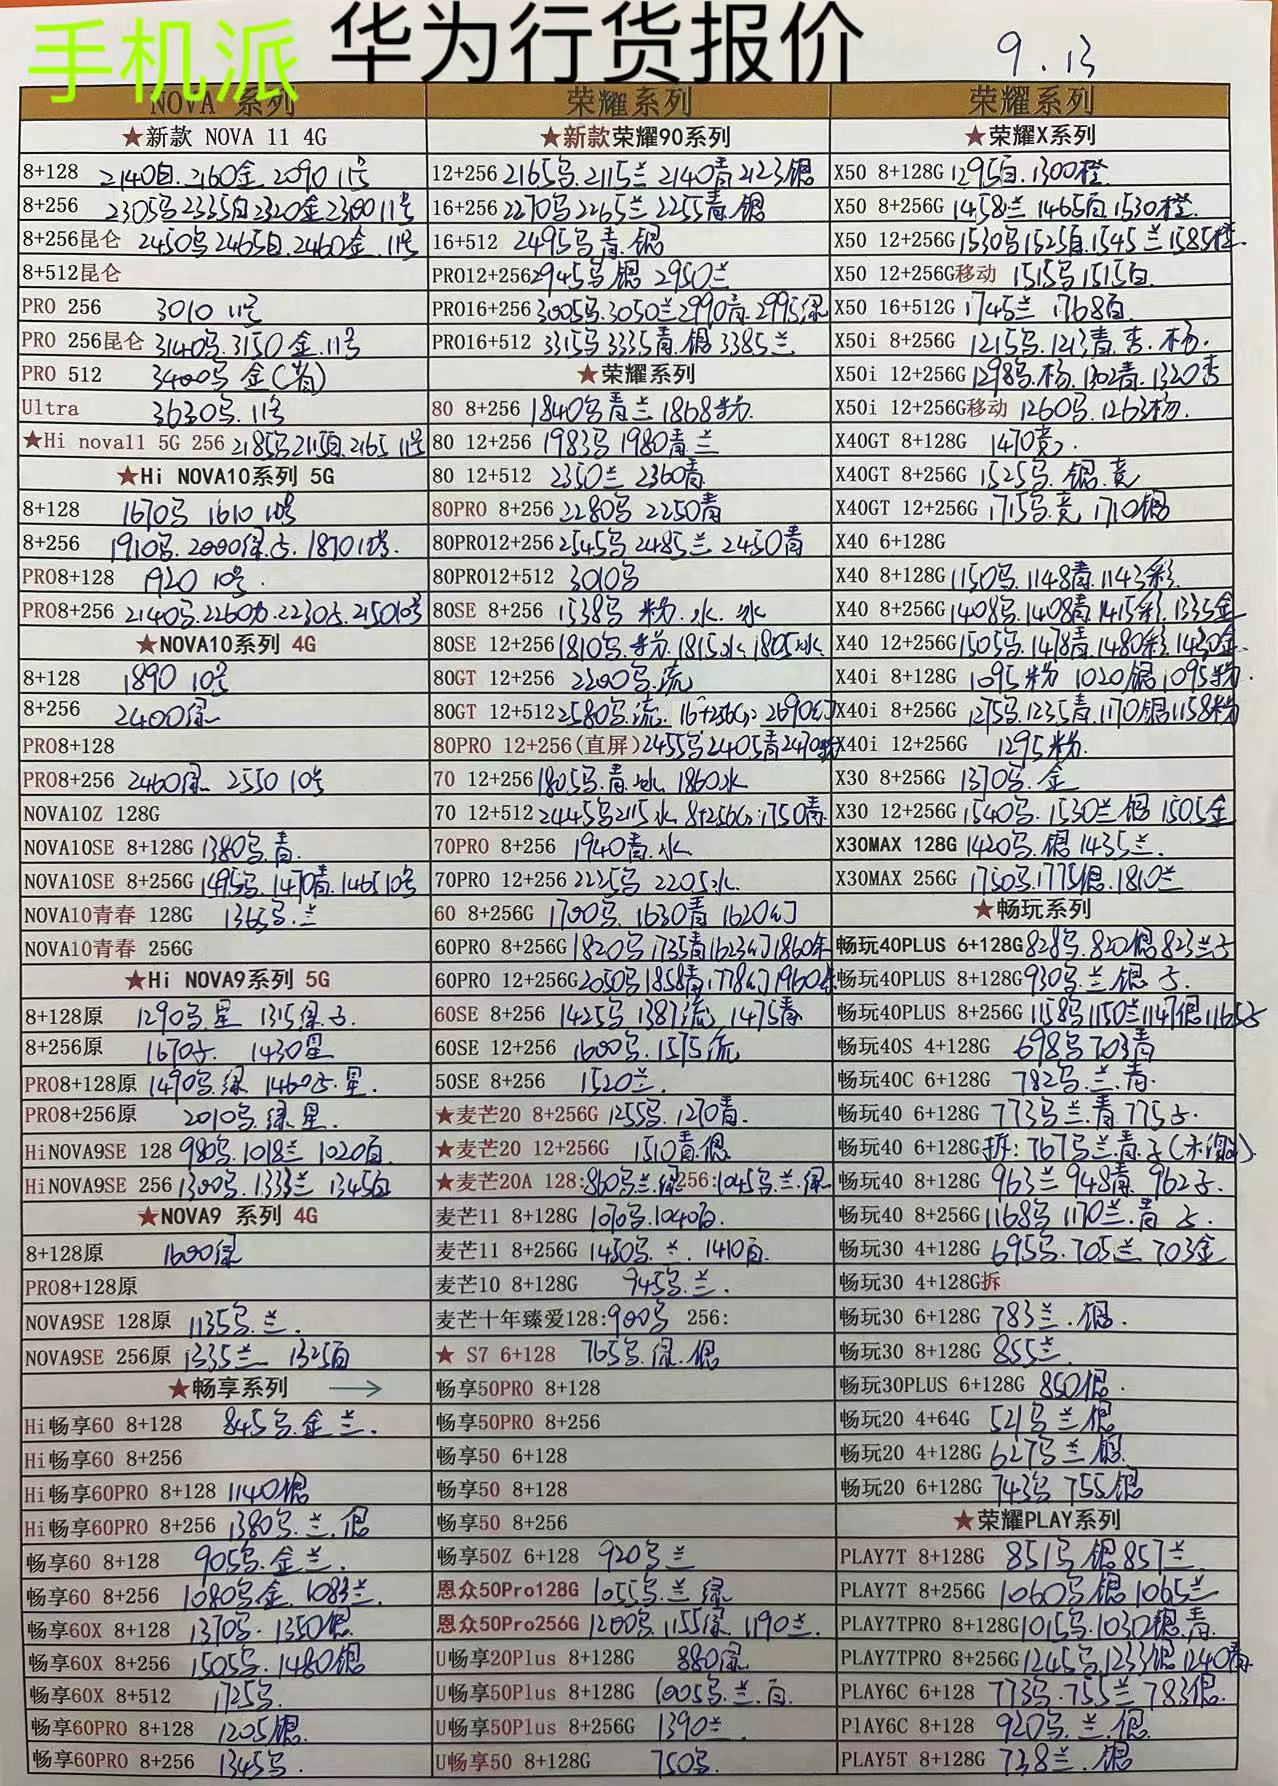 手机派 华为行货报价 9.13
NOVA 系列
★新款 NOVA 11 4G
8+128 2140白.2160金 2090 11号
8+256 2305乌2335白2320金2300 11号
8+256昆仑 2450乌2465白.2460金.11号
8+512昆仑
PRO 256 3010 11号
PRO 256昆仑 3140乌.3150金.11号
PRO 512 3400乌 金
Ultra 3630乌.11号
★Hi nova11 5G 256 2185乌2115白.2165 11号
★Hi NOVA10系列 5G
8+128 1670乌 1610 10号
8+256 1910乌.2000绿.1870 10号.
PRO8+128 1920 10号.
PRO8+256 2140乌.2260.2230.2150 10号
★NOVA10系列 4G
8+128 1890 10号
8+256 2400绿
PRO8+128
PRO8+256 2460绿 2550 10号
NOVA10Z 128G
NOVA10SE 8+128G 1380乌.青.
NOVA10SE 8+256G 1495乌.1470青.1465 10号
NOVA10青春 128G 1365乌.兰
NOVA10青春 256G
★Hi NOVA9系列 5G
8+128原 1290乌.星 1315绿.
8+256原 1670. 1430星
PRO8+128原 1490乌.绿 1460.星.
PRO8+256原 2010乌.绿.星.
HiNOVA9SE 128 980乌.1018兰 1020白
HiNOVA9SE 256 1300乌.1333兰 1345白
★NOVA9 系列 4G
8+128原 1600绿
PRO8+128原
NOVA9SE 128原 1135乌.兰.
NOVA9SE 256原 1335兰 1325白
★畅享系列 →
Hi畅享60 8+128 845乌.金 兰.
Hi畅享60 8+256
Hi畅享60PRO 8+128 1140银
Hi畅享60PRO 8+256 1380乌.兰.银
畅享60 8+128 905乌.金兰.
畅享60 8+256 1080乌金.1083兰.
畅享60X 8+128 1370乌.1350银.
畅享60X 8+256 1505乌.1480银
畅享60X 8+512 1725乌.
畅享60PRO 8+128 1205银.
畅享60PRO 8+256 1345乌.
荣耀系列
★新款荣耀90系列
12+256 2165乌.2115兰 2140青2123银
16+256 2270乌2265兰2255青.银
16+512 2495乌青.银
PRO12+256 2945乌 银 2950兰
PRO16+256 3005乌.3050兰2990青.2995绿
PRO16+512 3315乌3335青.银3385兰
★荣耀系列
80 8+256 1840乌青兰1868粉.
80 12+256 1983乌 1980青兰
80 12+512 2350兰 2360青
80PRO 8+256 2280乌 2250青
80PRO12+256 2545乌 2485兰 2450青
80PRO12+512 3010乌
80SE 8+256 1538乌 粉.水.冰
80SE 12+256 1810乌.粉.1815水.1805冰
80GT 12+256 2200乌.流
80GT 12+512 2580乌.流.16+256G:2690幻
80PRO 12+256(直屏) 2455乌2405青2470粉
70 12+256 1805乌.青.冰 1860水
70 12+512 2445乌2115水 8+256G:1750青.
70PRO 8+256 1940青.水
70PRO 12+256 2225乌 2205水.
60 8+256G 1700乌.1630青 1620幻
60PRO 8+256G 1820乌1735青1623幻1860朱
60PRO 12+256G 2050乌1858青1778幻1960朱
60SE 8+256 1425乌 1387流 1475青
60SE 12+256 1600乌.1575流
50SE 8+256 1520兰.
★麦芒20 8+256G 1255乌.1270青.
★麦芒20 12+256G 1510青.银
★麦芒20A 128:860乌兰.绿256:1045乌.兰.绿
麦芒11 8+128G 1070乌.1040白.
麦芒11 8+256G 1450乌.兰.1410白.
麦芒10 8+128G 945乌.兰.
麦芒十年臻爱128:900乌 256:
★ S7 6+128 765乌.绿.银
畅享50PRO 8+128
畅享50PRO 8+256
畅享50 6+128
畅享50 8+128
畅享50 8+256
畅享50Z 6+128 920乌兰
恩众50Pro128G 1055乌.兰 绿
恩众50Pro256G 1200乌.1155绿.1190兰.
U畅享20Plus 8+128G 880绿
U畅享50Plus 8+128G 1005乌.兰.白.
U畅享50Plus 8+256G 1390兰
U畅享50 8+128G 750乌
荣耀系列
★荣耀X系列
X50 8+128G 1295白.1300橙.
X50 8+256G 1458兰 1465白1530橙.
X50 12+256G 1530乌1525白.1545兰1585橙.
X50 12+256G移动 1515乌1515白.
X50 16+512G 1745兰 1768白.
X50i 8+256G 1215乌.1213青.杏.杨.
X50i 12+256G 1298乌.杨.1302青.1320杏
X50i 12+256G移动 1260乌.1263杨.
X40GT 8+128G 1470竞.
X40GT 8+256G 1525乌.银.竞
X40GT 12+256G 1715乌.竞 1710银
X40 6+128G
X40 8+128G 1150乌.1148青.1143彩.
X40 8+256G 1408乌.1408青1415彩.1335金
X40 12+256G 1505乌.1478青.1480彩.1430金.
X40i 8+128G 1095粉 1020银1095粉.
X40i 8+256G 1275乌.1235青.1170银1158粉
X40i 12+256G 1295粉.
X30 8+256G 1370乌.金
X30 12+256G 1540乌.1530兰 银 1505金
X30MAX 128G 1420乌.银 1435兰.
X30MAX 256G 1750乌.1775银.1810兰
★畅玩系列
畅玩40PLUS 6+128G 828乌.820银 823兰
畅玩40PLUS 8+128G 930乌.兰.银.
畅玩40PLUS 8+256G 1158乌1150兰1147银1165
畅玩40S 4+128G 698乌703青
畅玩40C 6+128G 782乌.兰.青.
畅玩40 6+128G 773乌兰.青775.
畅玩40 6+128G 拆:767乌兰.青
畅玩40 8+128G 963兰948青.962.
畅玩40 8+256G 1168乌 1170兰.青.
畅玩30 4+128G 695乌.705兰703金
畅玩30 4+128G拆
畅玩30 6+128G 783兰.银.
畅玩30 8+128G 855兰
畅玩30PLUS 6+128G 850银.
畅玩20 4+64G 521乌兰银
畅玩20 4+128G 627乌兰银.
畅玩20 6+128G 743乌 755银
★荣耀PLAY系列
PLAY7T 8+128G 851乌 银857兰
PLAY7T 8+256G 1060乌银1065兰
PLAY7TPRO 8+128G 1015乌.1030银.青.
PLAY7TPRO 8+256G 1245乌.1233银1240青.
PLAY6C 6+128 773乌.755兰 783银.
PlAY6C 8+128 920乌.兰.银.
PLAY5T 8+128G 738兰.银